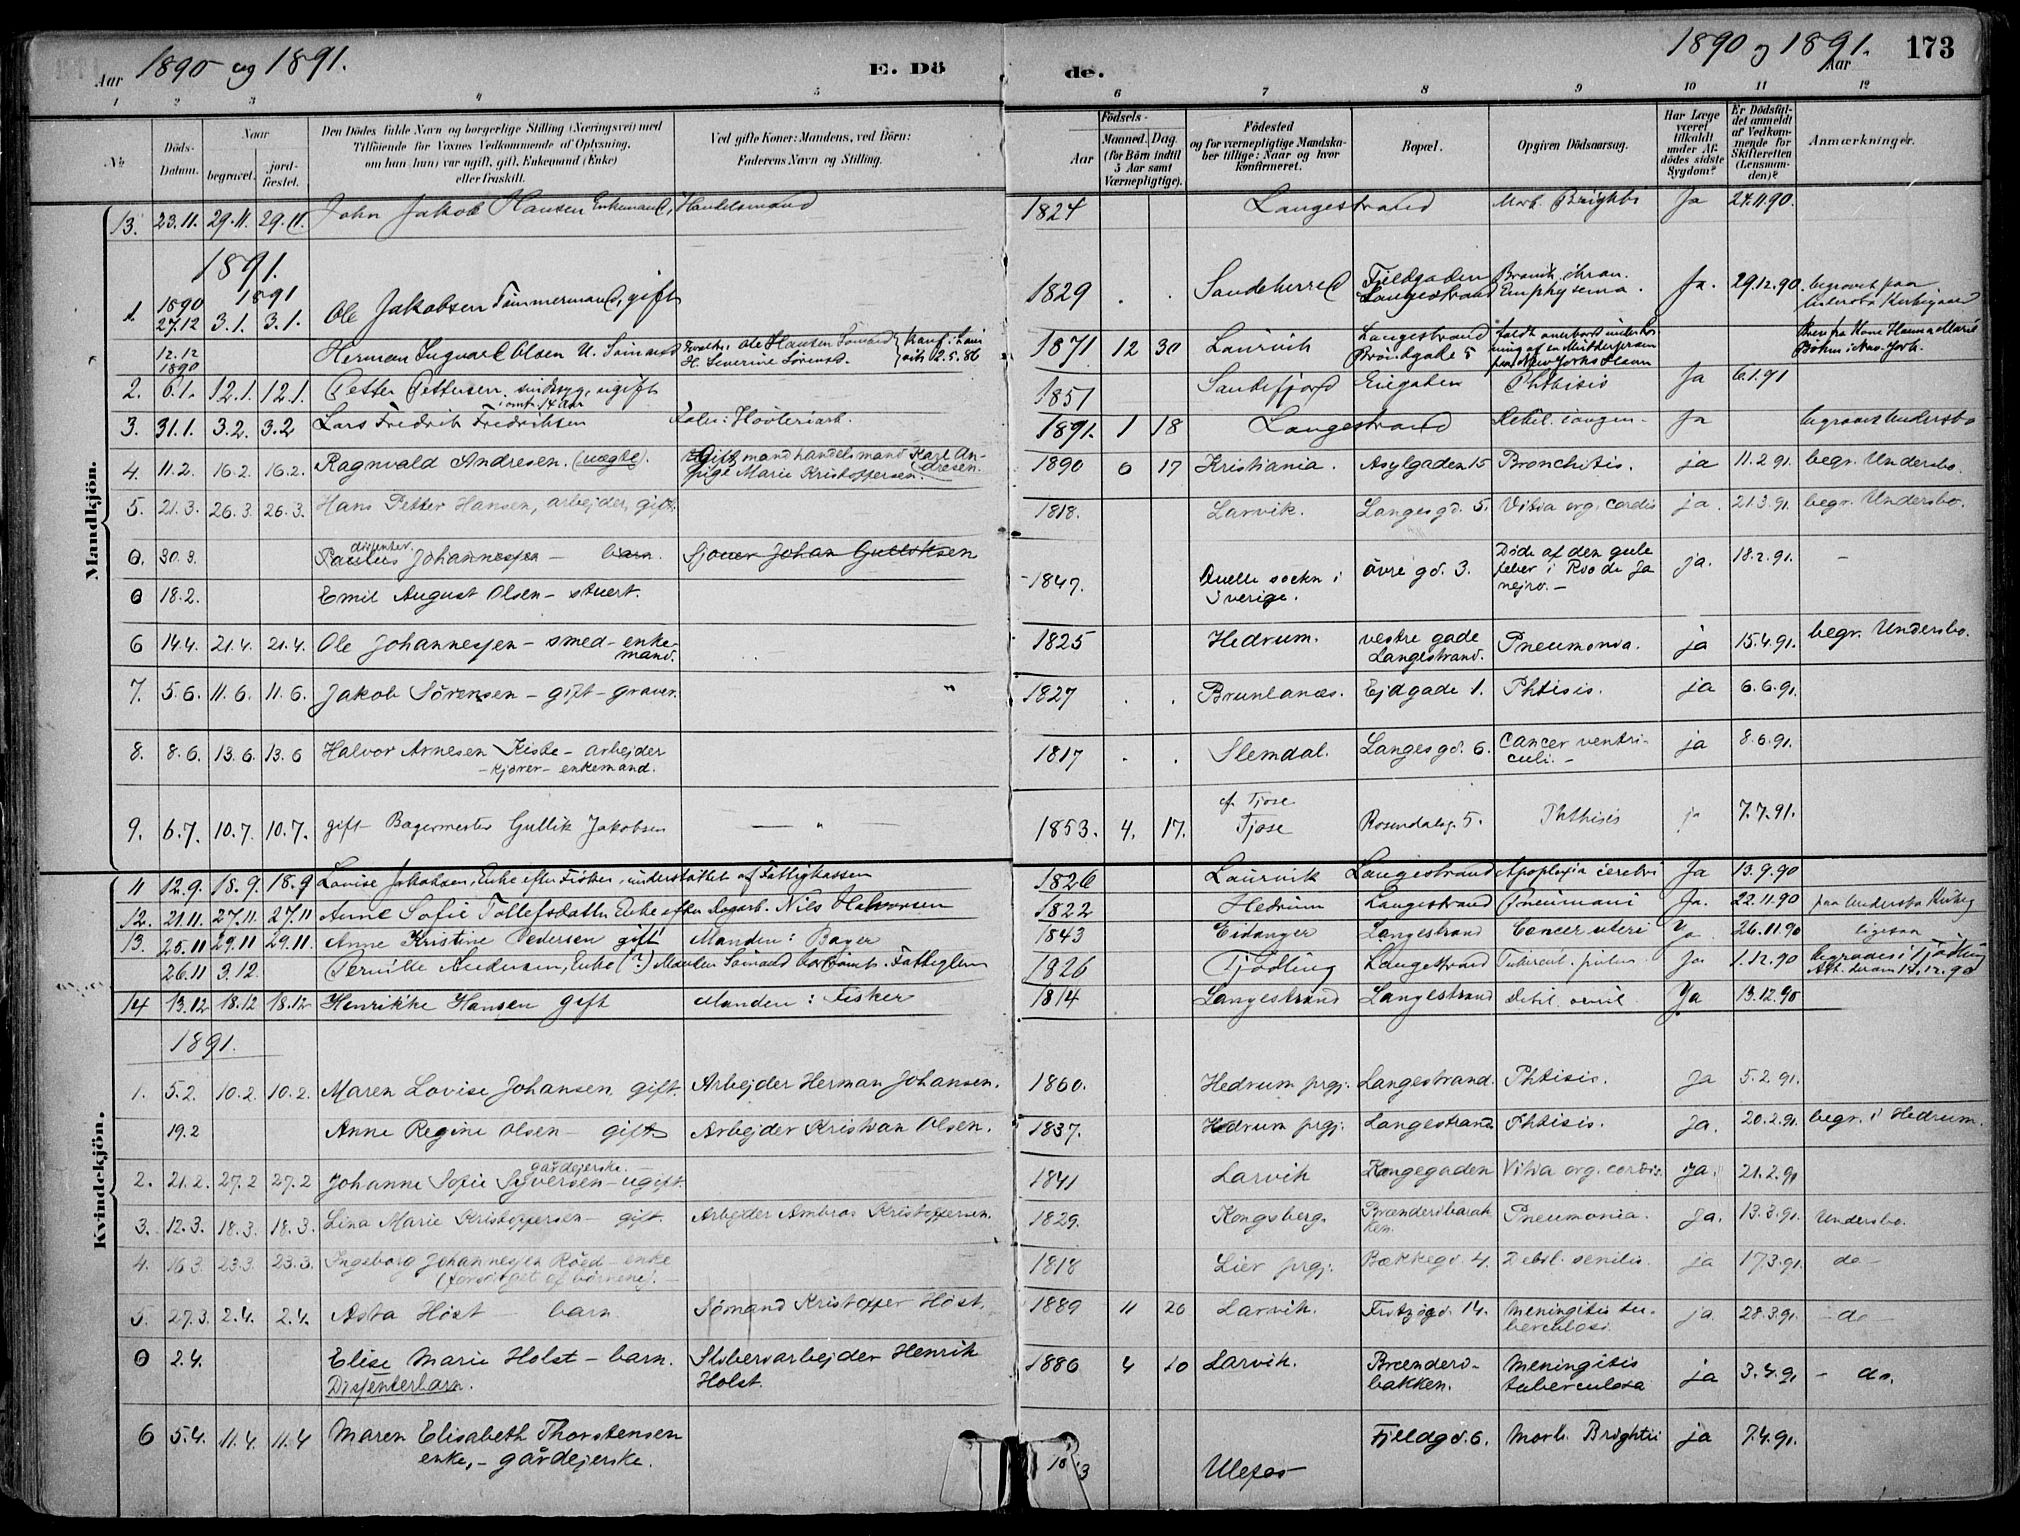 Aar 1890 og 1891. E. Dö de. 1890 og 1891. Aar 173
1 2 3 4 5 6 7 8 9 10 11 12
No Döds-Datum. Naar begravet. jord-fæstet. Den Dödes fulde Navn og borgerlige Stilling (Næringsvei) med Tilföiende for Voxnes Vedkommende af Oplysning, om han (hun) var ugift, gift, Enkemand (Enke) eller fraskilt. Ved gifte Koner: Mandens, ved Börn: Faderens Navn og Stilling. Födsels- Aar Maaned. Dag. (for Börn indtil 5 Aar samt Værnepligtige). Födested og for værnepligtige Mandskaber tillige: Naar og hvor konfirmeret. Bopæl. Opgiven Dödsaarsag. Har Læge været tilkaldt under Afdödes sidste Sygdom? Er Dödsfaldet anmeldt af Vedkommende for Skifteretten (Lensmanden)? Anmærkninger.
Mandkjön.
13. 23.11. 29.11. 29.11. John Jakob Hansen Enkemand, Handelsmand 1824 Langestrand Morb. Brightii Ja 24.11.90.
1891.
1. 1890 27.12 1891 3.1. 3.1. Ole Jakobsen Tømmermand, gift 1829 . . Sandeherred Fjeldgaden Langestrand Bronch. chron. Emphysema. Ja. 29.12.90 begravet paa Undersbo Kirkegaard
12.12 1890 Herman Ingvard Olsen U. Sømand Forældre: Ole Hansen Sømand H. Severine Sørensd. Konf. i Laurvik 2.5.86 1871 12 30 Laurvik Langestrand Brøndgade 5
2. 6.1. 12.1. 12.1. Petter Pettersen, sindssyg, ugift i omtr. 14 Aar 1851 Sandefjord Enigaden Phthisis Ja 6.1.91
3. 31.1. 3.2. 3.2 Lars Fredrik Fredriksen Fader: Høvleriarb. 1891. 1 18 Langestrand Debil. congen. Ja begravet Undersbo
4. 11.2. 16.2. 16.2. Ragnvald Andresen. (uægte). Gift mand handelsmand Karl Andresen. Pige Marie Kristoffersen. 1890 6 17 Kristiania. Asylgaden 15 Bronchitis. ja 11.2.91. begr. Undersbo.
5. 21.3. 26.3. 26.3. Hans Petter Hansen, arbejder, gift. 1818. Larvik. Langesgd. 5. Vitia org. cordis ja. 21.3.91. begr. Undersbo.
0. 30.3. dissenter. Paulus Johannessen — barn. Sjouer Johan Gulliksen
0 18.2. Emil August Olsen — stuert. -1847. Quelle sockn i Sverige. övre gd. 3. Døde af den gule feber i Rio de Janejro. — ja. 18.2.91. —
6 14.4. 21.4. 21.4. Ole Johannessen — smed — enkemand. 1825 Hedrum. vestre gade Langestrand. Pneumonia. ja 15.4.91. begr. Undersbo.
7. 5.6. 11.6. 11.6. Jakob Sörensen — gift — graver. " 1827 . . Brunlanæs. Ejdgade 1. Phtisis. ja 6.6.91.
8. 8.6. 13.6. 13.6 Halvor Arnesen Kiste — arbejder — kjører — enkemand. 1817 . . Slemdal. Langesgd. 6. Cancer ventriculi. — ja 8.6.91.
9. 6.7. 10.7. 10.7. gift Bagermester Gullik Jakobsen — " 1853. 4. 17. Tjose Rosendalsg. 5. Phthisis ja 7.7.91.
Kvindekjön.
11 12.9. 18.9. 18.9 Lovise Jakobsen, Enke efter Fisker, understøttet af Fattigkassen 1826 Laurvik Langestrand Apoplexia cerebri Ja 13.9.90
12. 21.11. 27.11. 27.11 Anne Sofie Tollefsdatter Enke efter Dagarb. Nils Halvorsen 1822 Hedrum Langestrand Pneumoni Ja. 22.11.90 paa Undersbo Kirkeg
13. 25.11 29.11 29.11. Anne Kristine Pedersen gift Manden: Bager 1843 Eidanger Langestrand Cancer uteri Ja 26.11.90 ligesaa
26.11 3.12. Pernille Andersen, Enke (?) Manden Sømand Fattiglem 1826 Tjødling Langestrand Tubercul. pulm. Ja 1.12.90 begraves i Tjødling Att. derom 17.12.90
14 13.12 18.12 18.12 Henrikke Hansen gift Manden: Fisker 1814 Langestrand Langestrand Debil. senil Ja 13.12.90
1891.
1. 5.2. 10.2. 10.2. Maren Lovise Johansen. gift. Arbejder Herman Johansen. 1860. Hedrum prgj. Langestrand. Phtisis. Ja 5.2.91.
19.2 Anne Regine Olsen — gift. Arbejder Kristian Olsen. 1837. Hedrum prgj. Langestrand Phtisis. Ja. 20.2.91 begr. i Hedrum.
2. 21.2. 27.2 27.2 Johanne Sofie Syversen — ugift. gårdejerske. — 1841 Larvik Kongegaden Vitia org. cordis. ja. 21.2.91
3. 12.3. 18.3. 18.3. Lina Marie Kristoffersen — gift. Arbejder Ambros Kristoffersen. 1829. Kongsberg. Brænderibakken. Pneumonia. ja. 13.3.91. Undersbo.
4. 16.3. 23.3. 23.3. Ingeborg Johannessen Röed — enke (forsörget af börnene). — 1818 Lier prgj. Bækkegd. 4. Debil. senilis. ja 17.3.91. do —
5. 27.3. 2.4. 2.4. Asta Höst — barn. Sömand Kristoffer Höst. 1889 11 20 Larvik. Fritzögd. 14. Meningitis tuberculosi. ja. 28.3.91. — do —
0 2.4. Elise Marie Holst — barn. Dissenterbarn. Sliberiarbejder Henrik Holst. 1886 4 10 Larvik. Brænderibakken. Meningitis tuberculosa ja 3.4.91 — do.
6 5.4. 11.4. 11.4 Maren Elisabeth Thorstensen enke, — gårdejerske. 18 3 Ulefos Fjeldgd. 6. Morb. Brightii ja 7.4.91.